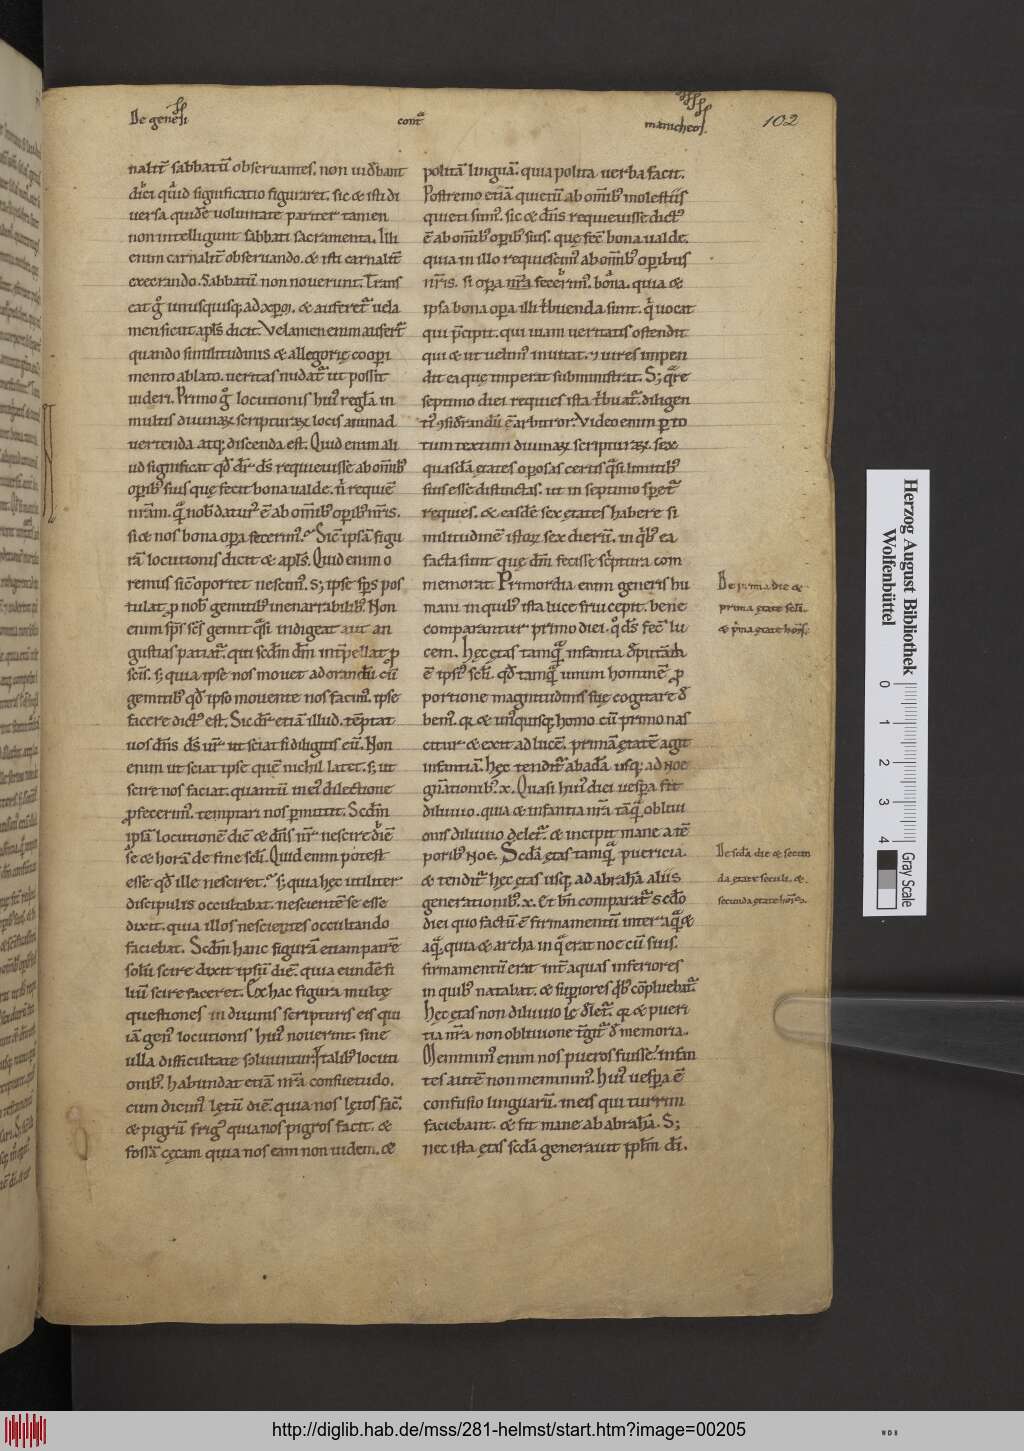 De genesi
contᷓ
manicheos.
102
nalit̄ sabbatū obseruantes. non uiđbant
diei quid significatio figuraret. sic & isti di
uersa quidē uoluntate pariter tamen
non intelligunt sabbati sacramenta. Illi
enim carnalit̄ obseruando. & isti carnalit̄
execrando. Sabbatū non nouerunt. Trans
cat g̊ unusquisq; ad xp̄m. & auferet᷑ uela
men sicut apl̄s dicit. Velamen enim aufert᷑
quando similitudinis & allegorię coop̱i
mento ablato. ueritas nudat᷑ ut possit
uideri. Primo g̊ locutionis hui᷒ regl̄a in
multis diuinaꝝ scripturaꝝ locis animad
uertenda atq; discenda est. Quid enim ali
ud significat qđ dr̄ ds̄ requieuisse ab om̄ib᷒
op̱ib᷒ suis quę fecit bona ualde. n̄ requiē
nr̄am. quā nob̄ datur᷒ ē ab om̄ib᷒ op̱ib᷒ nr̄is.
si & nos bona op̱a fecerim᷒. Sic̄ ipsā figu
rā locutionis dicit & apl̄s. Quid enim o
remus sic̄ oportet nescim᷒. s; ipse sp̄s pos
tulat ꝓ nob̄ gemitib᷒ inenarrabilib᷒. Non
enim sp̄s sc̄s gemit q̄si indigeat aut an
gustias patiat᷑. qui scđm dm̄ int̄pellat ꝓ
sc̄is. s; quia ipse nos mouet ad orandū cū
gemitib᷒ qđ ipso mouente nos facim᷒. ipse
facere dict᷒ est. Sic dr̄ etiā illud. tēptat
uos dn̄s ds̄ ur̄ ut sciat si diligitis eū. Non
enim ut sciat ipse quē nichil latet. s; ut
scire nos faciat. quantū in ei᷒ dilectione
ꝓfecerim᷒. temptari nos p̱mittit. Scđm
ipsā locutionē dic̄ & dn̄s nr̄ nescire diē
& horā de fine sc̄li. Quid enim potest
esse qđ ille nesciret. s; quia hęc utiliter
discipulis occultabat. nescientē se esse
dixit. quia illos nescientes occultando
faciebat. Scđm hanc figurā etiam patrē
solū scire dixit ipsū diē. quia eundē fi
liū scire faceret. Ex hac figura multę
questiones in diuinis scripturis eis qui
iā gen᷒ locutionis hui᷒ nouerint. sine
ulla difficultate soluuntur. Talib᷒ locuti
onib᷒. habundat etiā nr̄a consuetudo.
cum dicim᷒ lętū diē. quia nos lętos fac̄.
& pigrū frig᷒ quia nos pigros facit. &
fossā cęcam quia nos eam non uidem. &
politā linguā. quia polita uerba facit.
Postremo etiā quietū ab om̄ib᷒ molestiis
quieti sum᷒. sic & dn̄s requieuisse dict᷒
ē ab om̄ib᷒ op̱ib᷒ suis. quę fec̄ bona ualde.
quia in illo requiescim᷒ ab om̄ib᷒ operibus
nr̄is. si op̱a nr̄a fecerim᷒. bona. quia &
ipsa bona op̱a illi tribuenda sunt. qui uocat
qui p̄cipit. qui uiam ueritatis ostendit
qui & ut uelim᷒ inuitat. & uires impen
dit ea quę imperat subministrat. S; quare
septimo diei requies ista tribuat᷑. diligen
ti᷒ ꝯsiđrandū ē arbitror. Video enim ꝑ to
tum textum diuinaꝝ scripturaꝝ. sex
quasdā ętates op̱osas certis quasi limitib᷒
suis esse distinctas. ut in septimo sp̱et᷑
requies. & easdē sex ętates habere si
militudinē istoꝝ sex dierū. in quib᷒ ea
facta sunt que dm̄ fecisse scriptura com
memorat. Primordia enim generis hu
mani in quib᷒ ista luce frui cepit. bene
comparantur primo diei. quo ds̄ fec̄ lu
cem. Hęc ętas tamquā infantia đputāda
ē ipsi᷒ sc̄li. qđ tamquā unum hominē ꝓ
portione magnitudinis suę cogitare đ
bem᷒. q; & un᷒quisq; homo. cū primo nas
citur & exit ad lucē. primā ętatē agit
infantiā. Hęc tendit᷑ ab adā usq; ad noe
gn̄ationib᷒ .x. Quasi hui᷒ diei uesp̱a fit
diluuio. quia & infantia nr̄a tāquā obliui
onis diluuio delet᷑. & incipit mane a tē
porib᷒ noe. Scđa ętas tamquā puericia
& tendit᷑ hęc ętas usq; ad abrahā aliis
generationib᷒ .x. Et bn̄ comparat᷑ scđo
diei quo factū ē firmamentū inter aquā &
aquā. quia & archa in qua erat noe cū suis.
firmamentū erat int̄ aquas inferiores
in quib᷒ natabat. & sup̱iores quib᷒ cōpluebat᷑
Hęc ętas non diluuio đlet᷑. q; & pueri
tia nr̄a non obliuione t̄git᷑ đ memoria.
Meminim᷒ enim nos pueros fuisse. infan
tes autē non meminim᷒. Hui᷒ uesp̱a ē
confusio linguarū. in eis qui turrim
faciebant. & fit mane ab abrahā. S;
nec ista ętas scđa generauit pp̄lm di.
De prima die &
prima ętate sc̄li.
& p̄ma ętate hoīs.
De scđa die & secun
da ętate seculi. &
secunda ętate hoīs.
Herzog August Bibliothek
Wolfenbüttel
0 1 2 3 4
Gray Scale
http://diglib.hab.de/mss/281-helmst/start.htm?image=00205